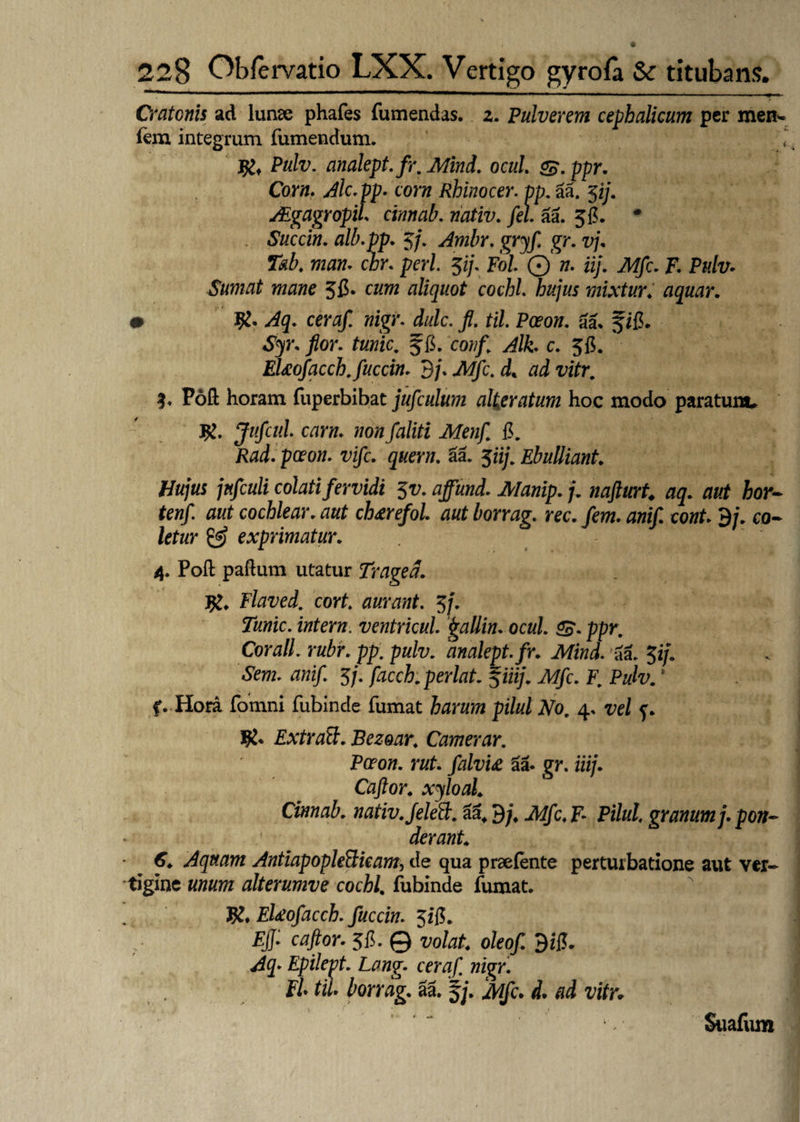 228 Obſervatio LXX. Vertigo gyroſa & titubans.
Cratonis ad lunæ phaſes ſumendas. 2. Pulverem cephalicum per men-
ſem integrum ſumendum.
℞. Pulv. analept. fr. Mind. ocul. ♋. ppr.
Corn. Alc. pp. corn Rhinocer. pp. āā. ʒij.
Ægagropil. cinnab. nativ. ſel. āā. ʒß.
Succin. alb. pp. ʒj. Ambr. gryſ. gr. vj.
Tab. man. chr. perl. ʒij. Fol. ☉ n. iij. Mſc. F. Pulv.
Sumat mane ʒß. cum aliquot cochl. hujus mixtur. aquar.
℞. Aq. ceraſ. nigr. dulc. fl. til. Pœon. āā. ℥iß.
Syr. flor. tunic. ℥ß. conf. Alk. c. ʒß.
Elæoſacch. ſuccin. ℈j. Mſc. d. ad vitr.
3. Poſt horam ſuperbibat juſculum alteratum hoc modo paratum.
℞. Juſcul. carn. non ſaliti Menſ. ß.
Rad. pœon. viſc. quern. āā. ʒiij. Ebulliant.
Hujus juſculi colati fervidi ʒv. affund. Manip. j. naſturt. aq. aut hor-
tenſ. aut cochlear. aut chærefol. aut borrag. rec. ſem. aniſ. cont. ℈j. co-
letur & exprimatur.
4. Poſt paſtum utatur Trageâ.
℞. Flaved. cort. aurant. ʒj.
Tunic. intern. ventricul. gallin. ocul. ♋. ppr.
Corall. rubr. pp. pulv. analept. fr. Mind. āā. ʒij.
Sem. aniſ. ʒj. ſacch. perlat. ℥iiij. Mſc. F. Pulv.
5. Horâ ſomni ſubinde ſumat harum pilul No. 4. vel 5.
℞. Extract. Bezoar. Camerar.
Pœon. rut. ſalviæ āā. gr. iiij.
Caſtor. xyloal.
Cinnab. nativ. ſelect. āā. ℈j. Mſc. F. Pilul. granum j. pon-
derant.
6. Aquam Antiapoplecticam, de qua præſente perturbatione aut ver-
tigine unum alterumve cochl. ſubinde ſumat.
℞. Elæoſacch. ſuccin. ʒiß.
Eſſ. caſtor. ʒß. ⊖ volat. oleoſ. ℈iß.
Aq. Epilept. Lang. ceraſ. nigr.
Fl. til. borrag. āā. ℥j. Mſc. d. ad vitr.
Suaſum